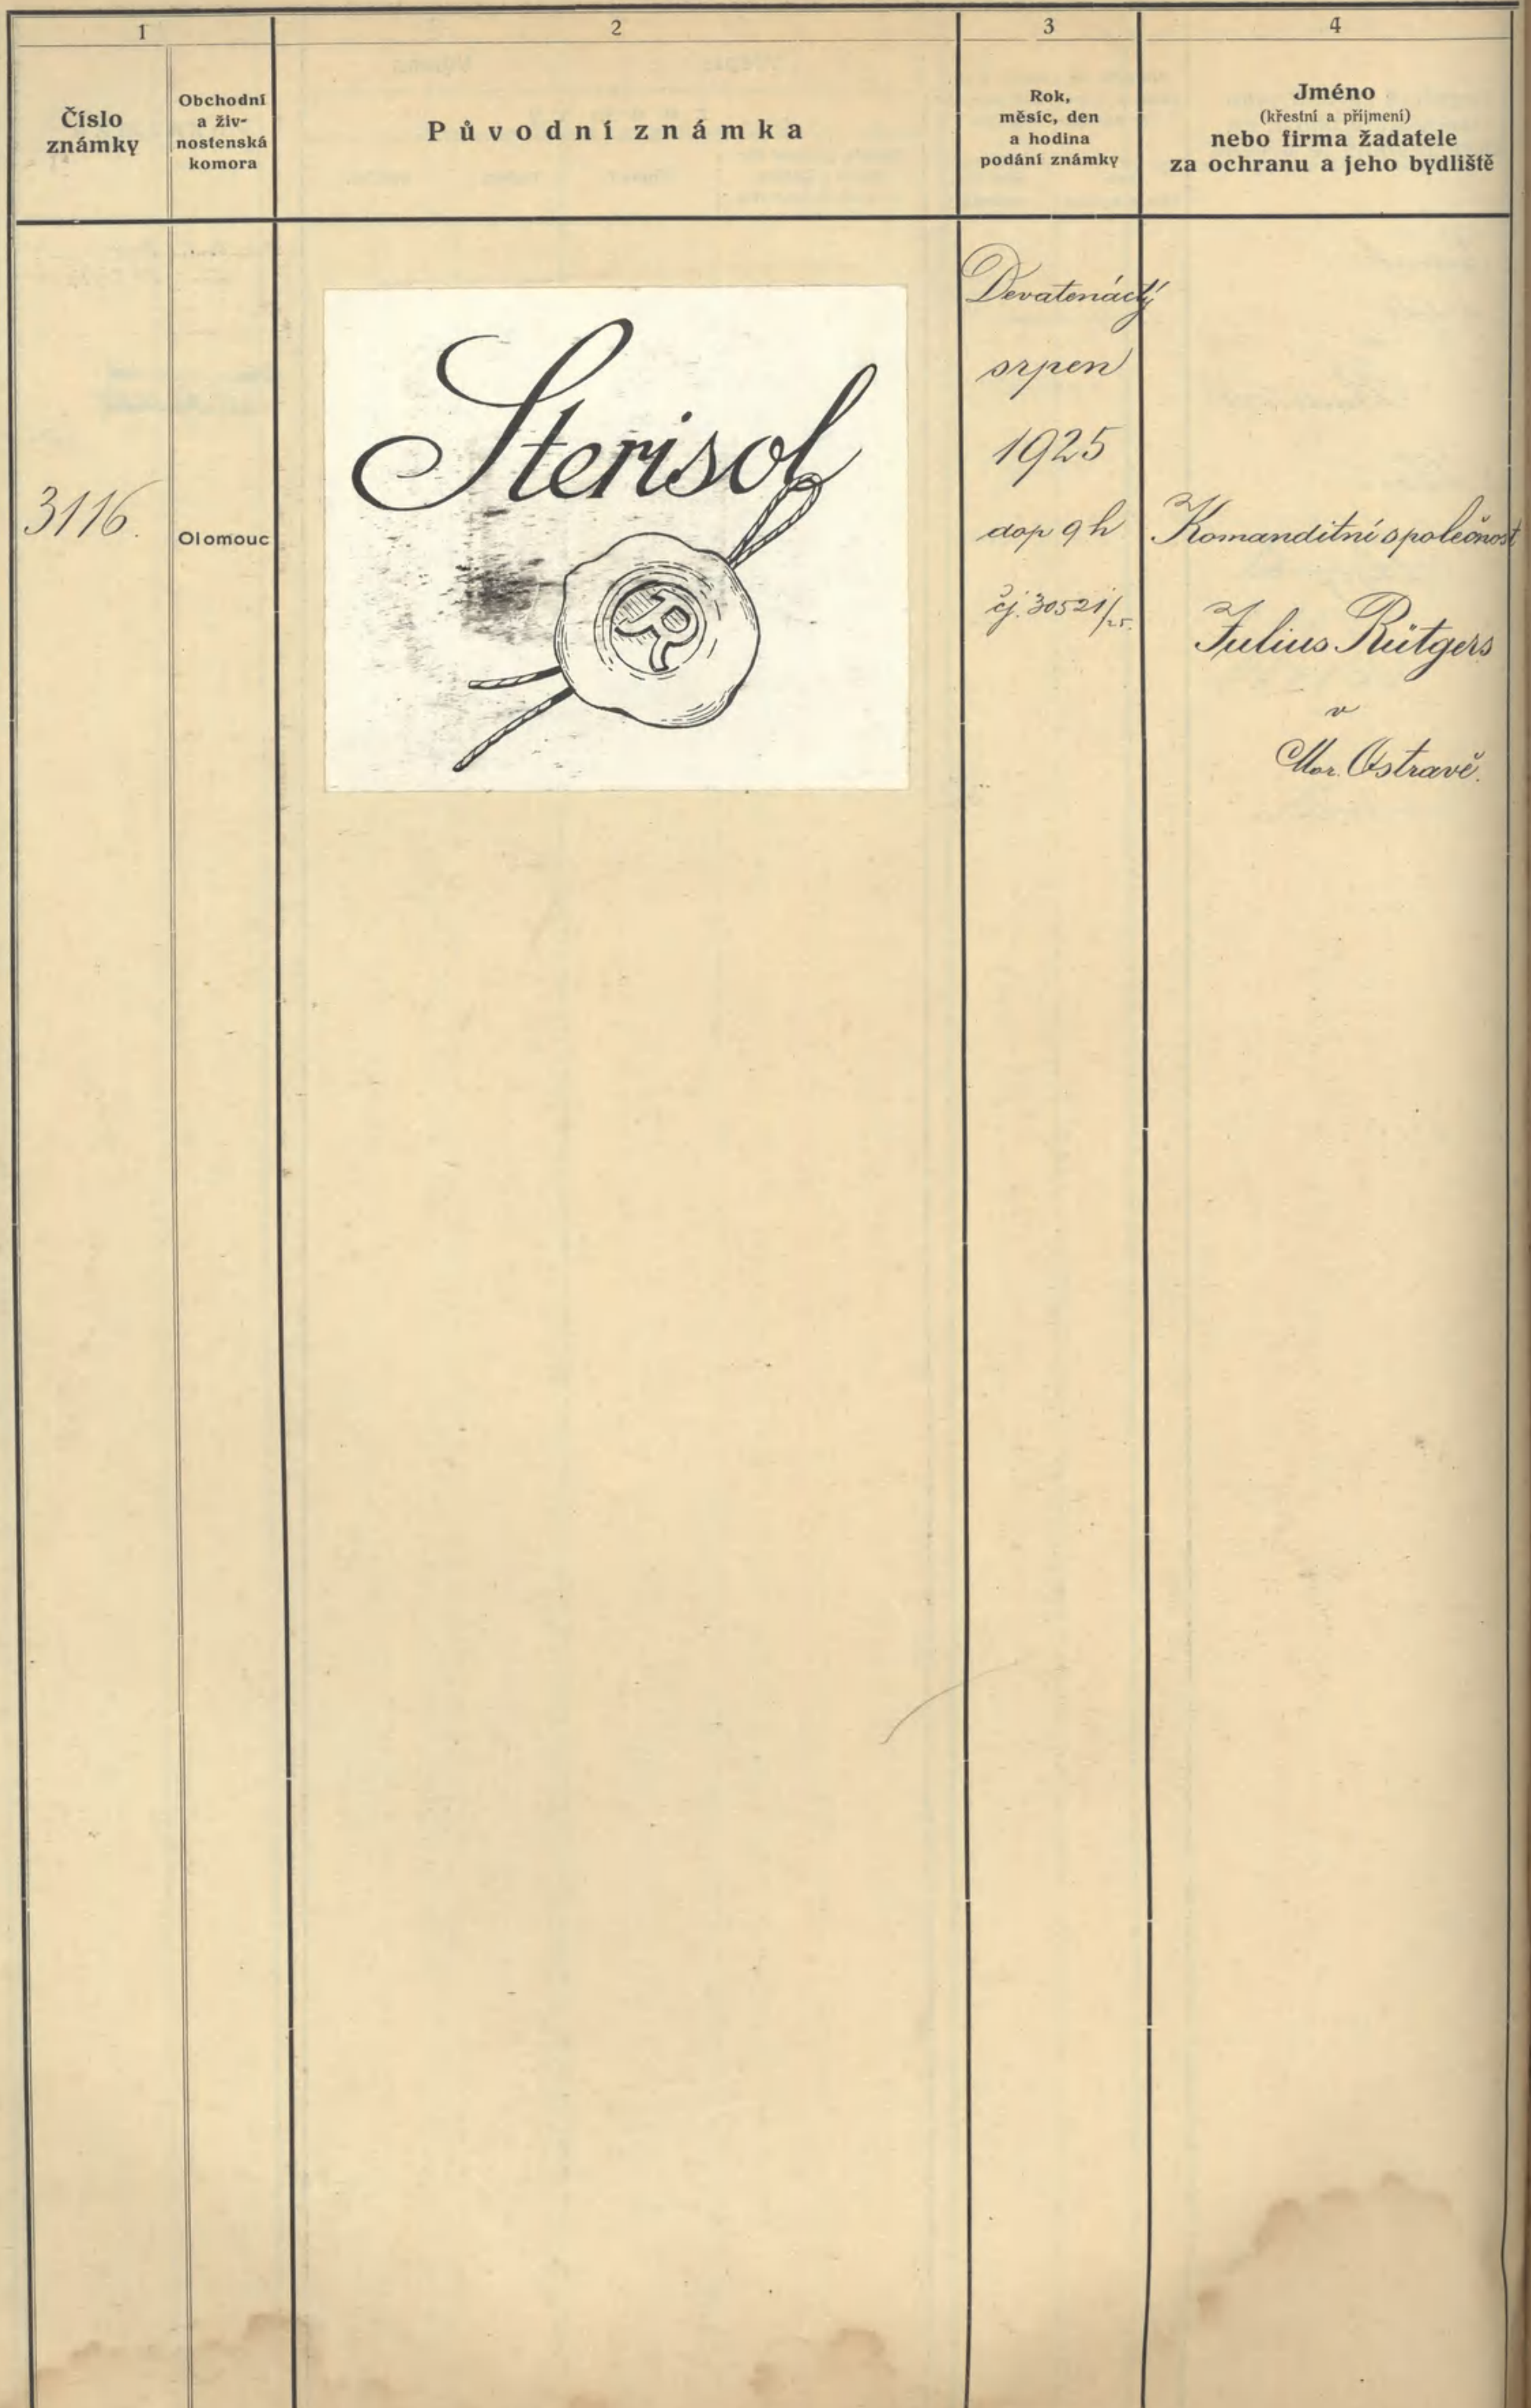 1
2
3
4
Číslo
známky
Obchodní
a živ-
nostenská
komora
Původní známka
Rok,
měsíc, den
a hodina
podání známky
Jméno
(křestní a příjmení)
nebo firma žadatele
za ochranu a jeho bydliště
3116.
Olomouc
Sterisol
JR
Devatenáctý
srpen
1925
dop 9 h
čj. 30521/25.
Komanditní společnost
Julius Rütgers
v
Mor. Ostravě.